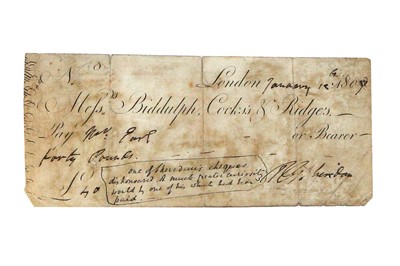 N
London January 12th 180
Mess.rs Biddulph, Cocks, & Ridges.
Pay or Bearer
Forty Pounds
£ 40
one of Sheridan's cheques
dishonoured. A much greater curiosity
would be one of his which had been
paid.
R B Sheridan